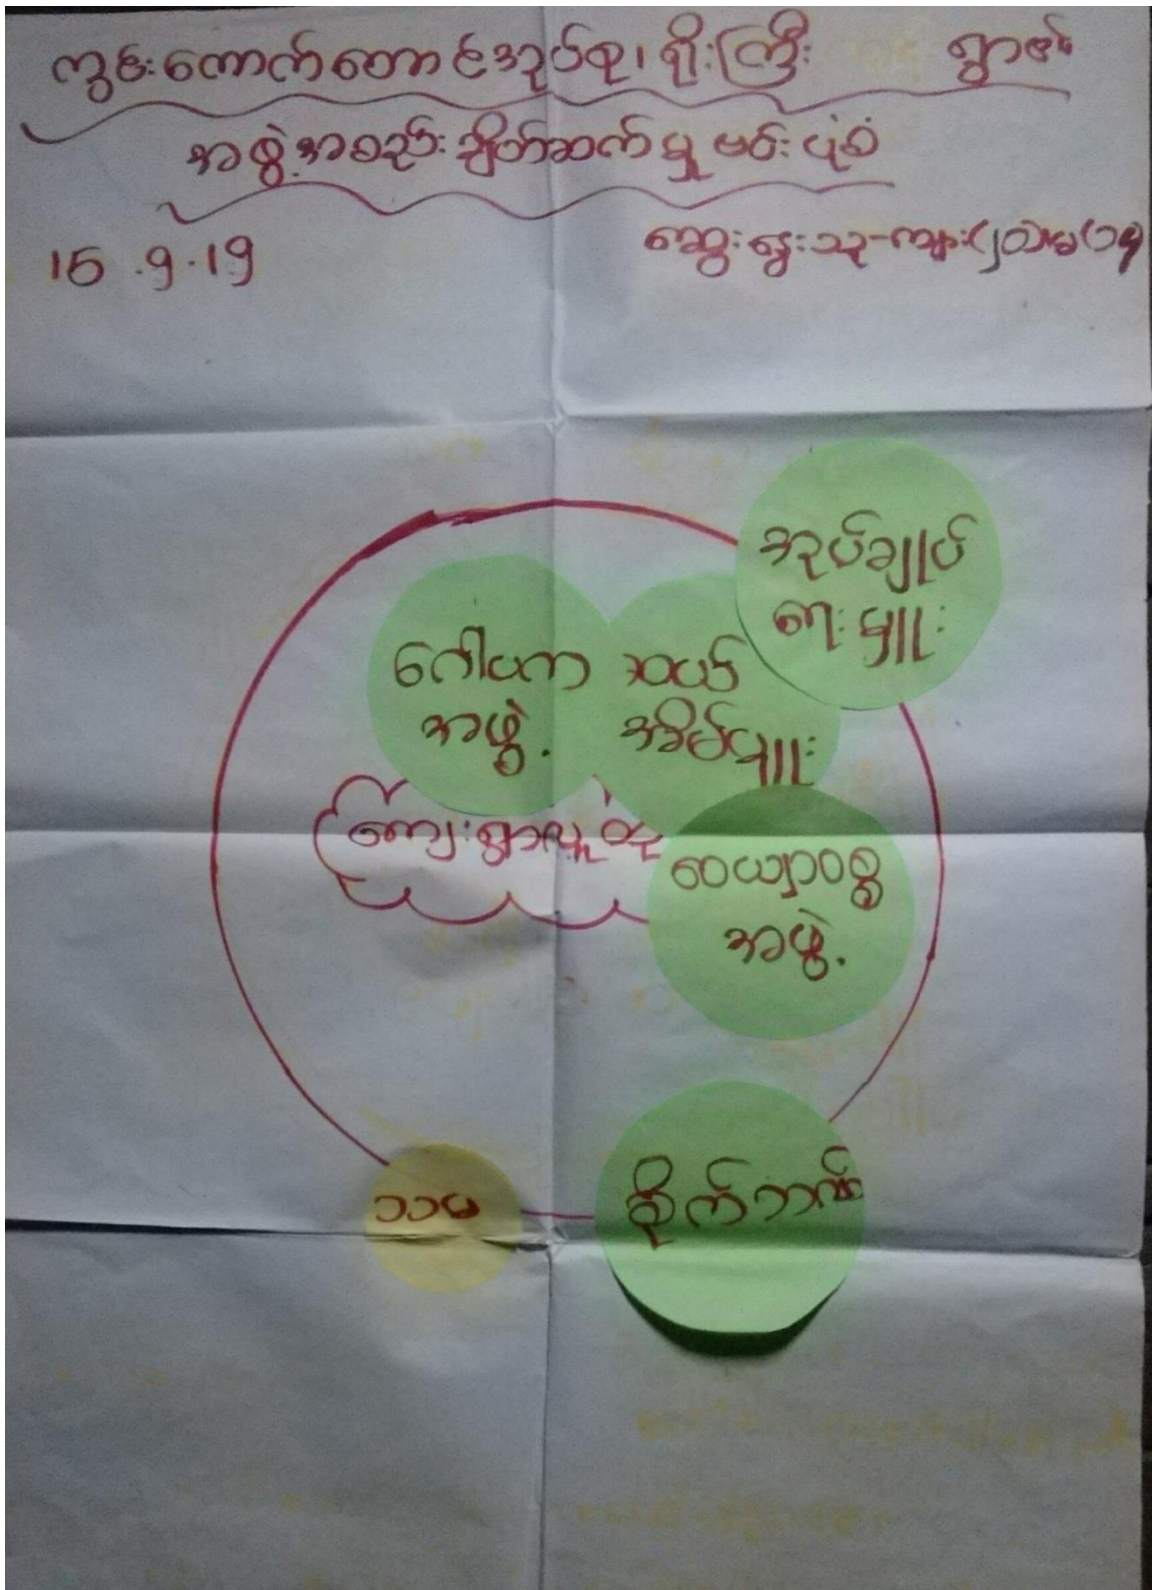 ကွမ်းကောက်တောင်အုပ်စု၊ ရိုးကြီး ရွာ၏
အဖွဲ့အစည်းချိတ်ဆက်မှုဗင်းပုံစံ
15.9.19
ဆွေးနွေးသူ-ကျား(၂)
အုပ်ချုပ်
ရေးမှူး
ဂေါပက
အဖွဲ့.
ဆယ်
အိမ်မှူး
ကျေးရွာလူထု
ဝေယျာဝစ္စ
အဖွဲ့.
သသမ
စိုက်ဘဏ်